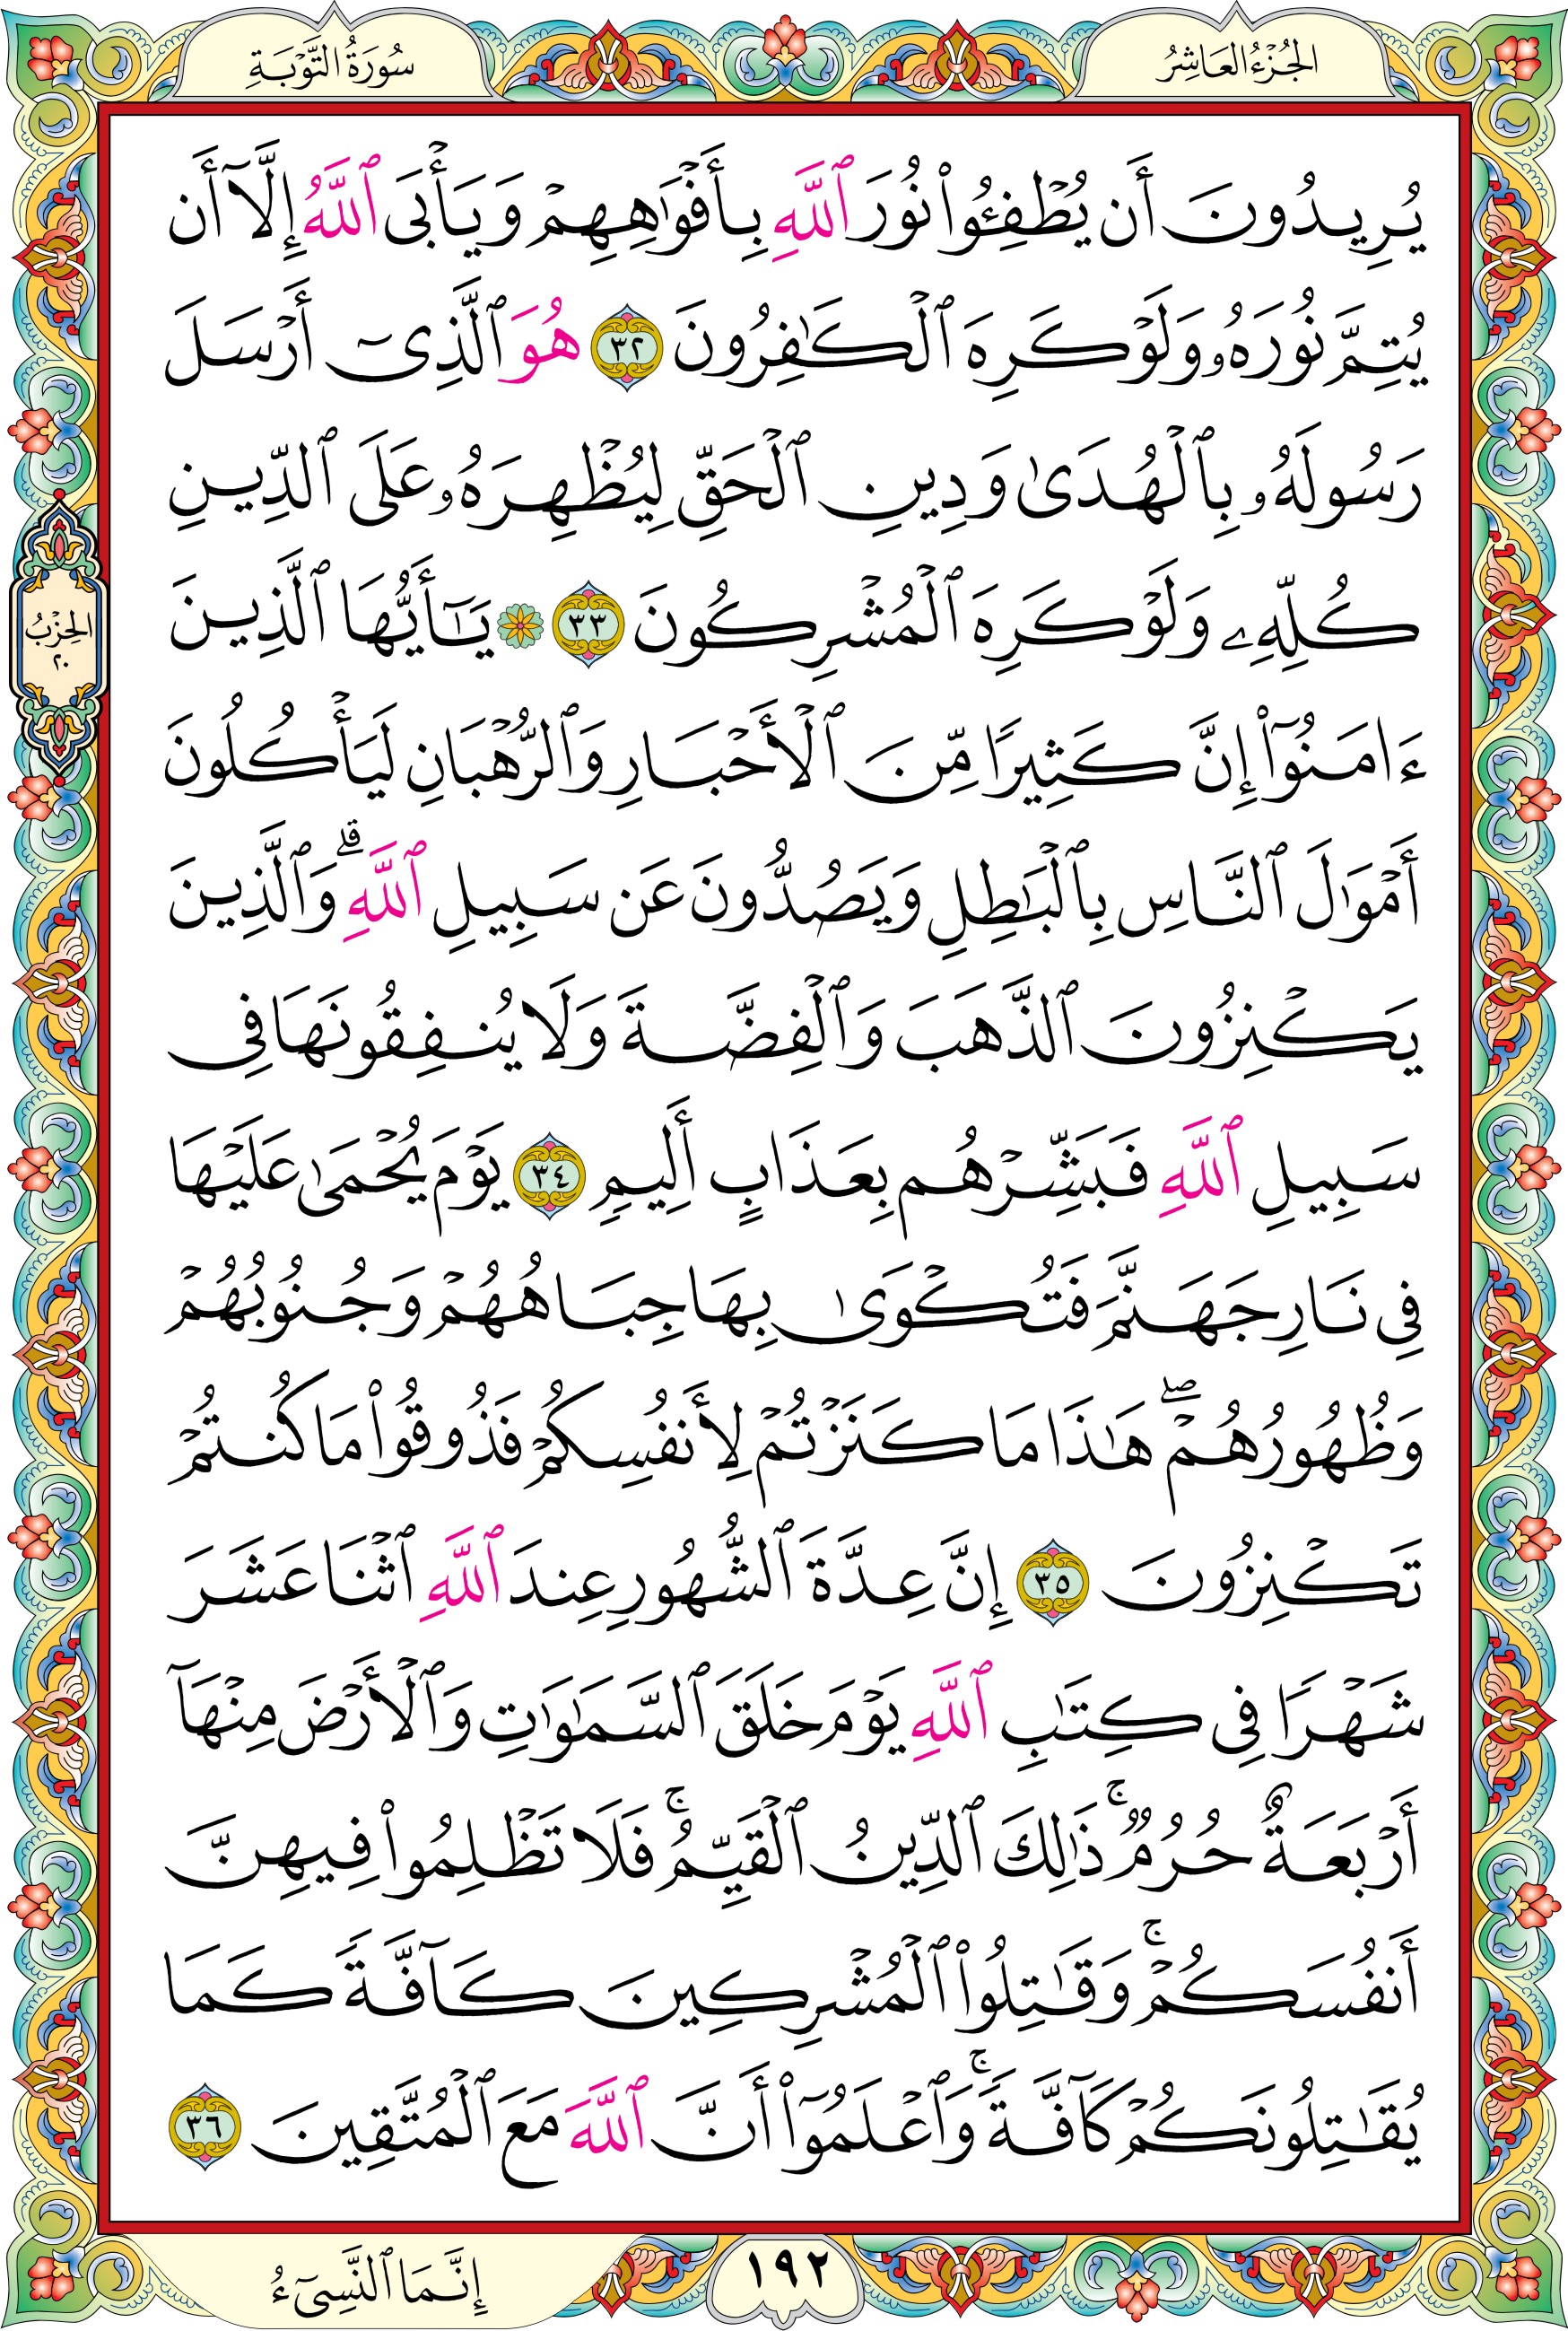 الجُزْءُ العَاشِرُ
سُورَةُ التَّوْبَةِ
يُرِيدُونَ أَن يُطْفِـُٔوا۟ نُورَ ٱللَّهِ بِأَفْوَٰهِهِمْ وَيَأْبَى ٱللَّهُ إِلَّآ أَن
يُتِمَّ نُورَهُۥ وَلَوْ كَرِهَ ٱلْكَٰفِرُونَ ٣٢ هُوَ ٱلَّذِىٓ أَرْسَلَ
رَسُولَهُۥ بِٱلْهُدَىٰ وَدِينِ ٱلْحَقِّ لِيُظْهِرَهُۥ عَلَى ٱلدِّينِ
كُلِّهِۦ وَلَوْ كَرِهَ ٱلْمُشْرِكُونَ ٣٣ ۞ يَٰٓأَيُّهَا ٱلَّذِينَ
ءَامَنُوٓا۟ إِنَّ كَثِيرًا مِّنَ ٱلْأَحْبَارِ وَٱلرُّهْبَانِ لَيَأْكُلُونَ
أَمْوَٰلَ ٱلنَّاسِ بِٱلْبَٰطِلِ وَيَصُدُّونَ عَن سَبِيلِ ٱللَّهِ ۗ وَٱلَّذِينَ
يَكْنِزُونَ ٱلذَّهَبَ وَٱلْفِضَّةَ وَلَا يُنفِقُونَهَا فِى
سَبِيلِ ٱللَّهِ فَبَشِّرْهُم بِعَذَابٍ أَلِيمٍ ٣٤ يَوْمَ يُحْمَىٰ عَلَيْهَا
فِى نَارِ جَهَنَّمَ فَتُكْوَىٰ بِهَا جِبَاهُهُمْ وَجُنُوبُهُمْ
وَظُهُورُهُمْ ۖ هَٰذَا مَا كَنَزْتُمْ لِأَنفُسِكُمْ فَذُوقُوا۟ مَا كُنتُمْ
تَكْنِزُونَ ٣٥ إِنَّ عِدَّةَ ٱلشُّهُورِ عِندَ ٱللَّهِ ٱثْنَا عَشَرَ
شَهْرًا فِى كِتَٰبِ ٱللَّهِ يَوْمَ خَلَقَ ٱلسَّمَٰوَٰتِ وَٱلْأَرْضَ مِنْهَآ
أَرْبَعَةٌ حُرُمٌ ۚ ذَٰلِكَ ٱلدِّينُ ٱلْقَيِّمُ ۚ فَلَا تَظْلِمُوا۟ فِيهِنَّ
أَنفُسَكُمْ ۚ وَقَٰتِلُوا۟ ٱلْمُشْرِكِينَ كَآفَّةً كَمَا
يُقَٰتِلُونَكُمْ كَآفَّةً ۚ وَٱعْلَمُوٓا۟ أَنَّ ٱللَّهَ مَعَ ٱلْمُتَّقِينَ ٣٦
الحِزْبُ
٢٠
١٩٢
إِنَّمَا ٱلنَّسِىٓءُ